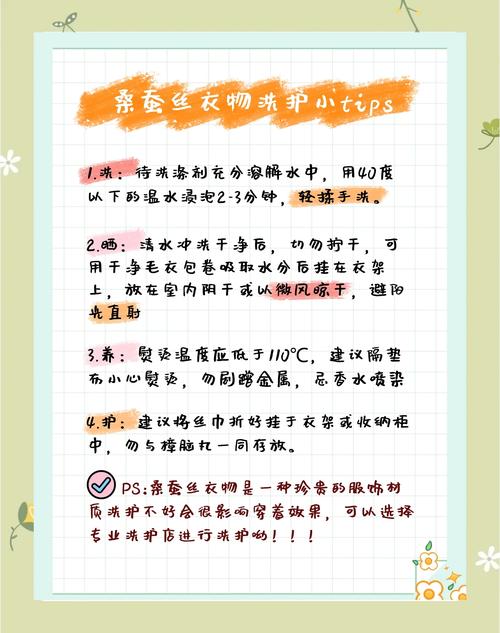 桑蚕丝衣物洗护小tips
1.洗：待洗涤剂充分溶解水中，用40度
以下的温水浸泡2-3分钟，轻揉手洗。
2.晒：清水冲洗干净后，切勿拧干，可
用干净毛衣包卷吸取水分后挂在衣架
上，放在室内阴干或以微风晾干，避阳
光直射
3.养：熨烫温度应低于110℃，建议隔垫
布小心熨烫，勿剐蹭金属，忌香水喷染
4.护：建议将丝巾折好挂于衣架或收纳柜
中，勿与樟脑丸一同存放。
PS:桑蚕丝衣物是一种珍贵的服饰材
质洗护不好会很影响穿着效果，可以选择
专业洗护店进行洗护呦！！！